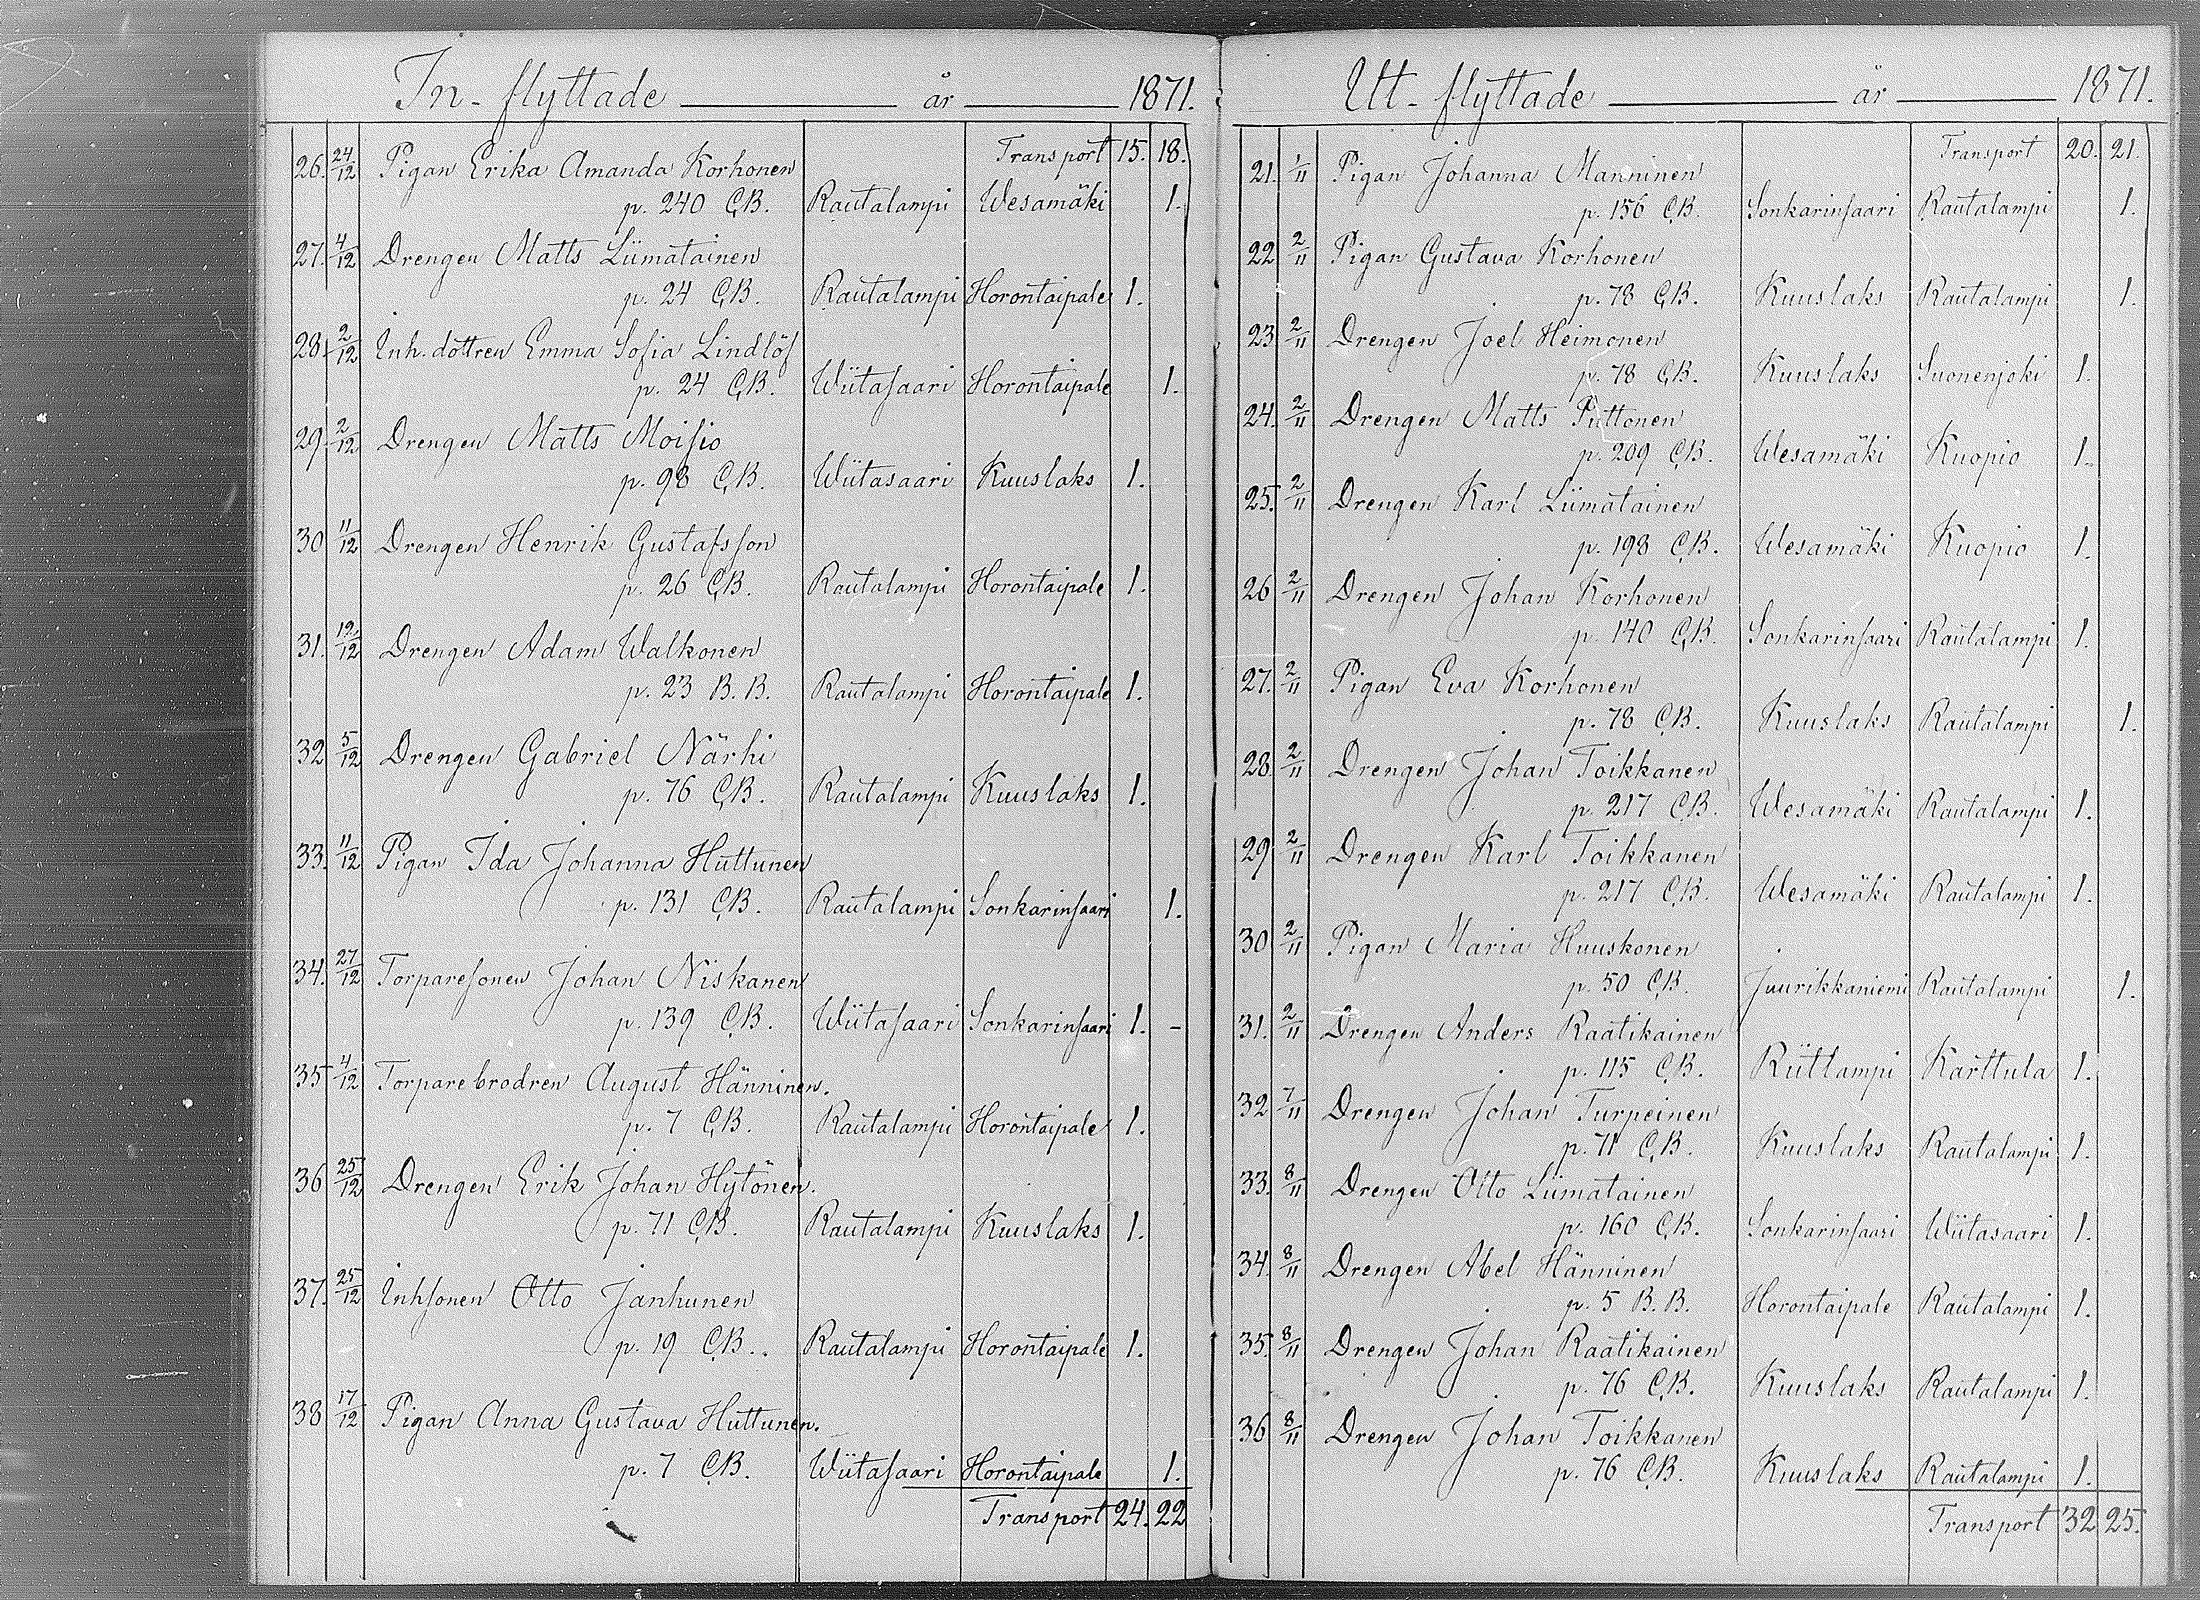 In-flyttade år 1871.
Transport 15. 18.
26. 24/12 Pigan Erika Amanda Korhonen
p. 240 C.B. Rautalampi Wesamäki 1.
27. 4/12 Drengen Matts Liimatainen
p. 24 C.B. Rautalampi Horontaipale 1.
28. 2/12 Inh. dottren Emma Sofia Lindlöf
p. 24 C.B. Wiitasaari Horontaipale 1.
29. 2/12 Drengen Matts Moisio
p. 98 C.B. Wiitasaari Kuuslaks 1.
30 11/12 Drengen Henrik Gustafsson
p. 26 C.B. Rautalampi Horontaipale 1.
31. 19/12 Drengen Adam Walkonen
p. 23 B.B. Rautalampi Horontaipale 1.
32 5/12 Drengen Gabriel Närhi
p. 76 C.B. Rautalampi Kuuslaks 1.
33. 11/12 Pigan Ida Johanna Huttunen
p. 131 C.B. Rautalampi Sonkarinsaari 1.
34. 27/12 Torparesonen Johan Niskanen
p. 139 C.B. Wiitasaari Sonkarinsaari 1. -
35 4/12 Torparebrodren August Hänninen.
p. 7 C.B. Rautalampi Horontaipale 1.
36 25/12 Drengen Erik Johan Hytönen.
p. 71 C.B. Rautalampi Kuuslaks 1.
37. 25/12 Inhsonen Otto Janhunen
p. 19 C.B. Rautalampi Horontaipale 1.
38 17/12 Pigan Anna Gustava Huttunen.
p. 7 C.B. Wiitasaari Horontaipale 1.
Transport 24. 22
Ut-flyttade år 1871.
Transport 20. 21.
21. 1/11 Pigan Johanna Manninen
p. 156 C.B. Sonkarinsaari Rautalampi 1.
22 2/11 Pigan Gustava Korhonen
p. 78 C.B. Kuuslaks Rautalampi 1.
23 2/11 Drengen Joel Heimonen
p. 78 C.B. Kuuslaks Suonenjoki 1.
24. 2/11 Drengen Matts Puttonen
p. 209 C.B. Wesamäki Kuopio 1.
25. 2/11 Drengen Karl Liimatainen
p. 198 C.B. Wesamäki Kuopio 1.
26 2/11 Drengen Johan Korhonen
p. 140 C.B. Sonkarinsaari Rautalampi 1.
27. 2/11 Pigan Eva Korhonen
p. 78 C.B. Kuuslaks Rautalampi 1.
28. 2/11 Drengen Johan Toikkanen
p. 217 C.B. Wesamäki Rautalampi 1.
29 2/11 Drengen Karl Toikkanen
p. 217 C.B. Wesamäki Rautalampi 1.
30 2/11 Pigan Maria Huuskonen
p. 50 C.B. Juurikkaniemi Rautalampi 1.
31. 2/11 Drengen Anders Raatikainen
p. 115 C.B. Riitlampi Karttula 1.
32 7/11 Drengen Johan Turpeinen
p. 71 C.B. Kuuslaks Rautalampi 1.
33. 8/11 Drengen Otto Liimatainen
p. 160 C.B. Sonkarinsaari Wiitasaari 1.
34. 8/11 Drengen Abel Hänninen
p. 5 B.B. Horontaipale Rautalampi 1.
35. 8/11 Drengen Johan Raatikainen
p. 76 C.B. Kuuslaks Rautalampi 1.
36 8/11 Drengen Johan Toikkanen
p. 76 C.B. Kuuslaks Rautalampi 1.
Transport 32 25.